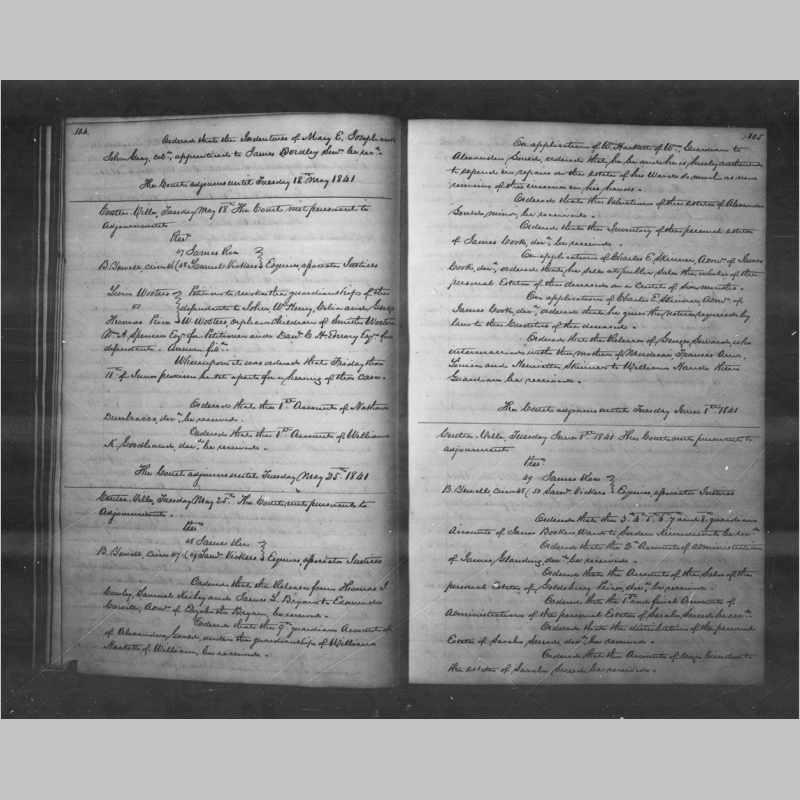 104
Ordered that the Indentures of Mary E. Joseph and
John Gray, cold, apprenticed to James Dordley Senr be recd.
The Court adjourns until Tuesday 18th May 1841
Centre Ville, Tuesday May 18th The Court met pursuant to
Adjournment
Prest
47 James Ren
B. Bewelle, circuit (48 Samuel Vickers Esquires, associate Justices
Levin Wooters Petition to revoke the guardianships of the
vs defendants to John Wm Henry, Celia and George
Thomas Pure W. Wooters, orphan children of Smith Wooters
Wm A. Spencer Esqr for Petitioner and Danl C. H. Emory Esqr for
defendants. Answer fild.
Whereupon it was ordered that Friday the
11th of June proximo be set apart for a hearing of this case.
Ordered that the 1st Account of Nathan
decd, be received.
Ordered that the 1st Account of William
K. Goodhand, decd, be received.
The Court adjourns until Tuesday May 25th 1841
Centre Ville, Tuesday May 25th The Court met pursuant to
Adjournment.
Prest
48 James Ren
B. Bewelle, Circu 47 (49 Saml Vickers Esquires, associate Justices
Ordered that the Release from Thomas I
Samuel and James L. Bryan to Edmund
Admr of Elizabeth Bryan, be received.
Ordered that the 9th guardians Account of
of Alexander under the guardianship of William
Hackett of William, be received.
105
On application of W. Hackett of Wm Guardian to
Alexander, ordered that he be and he is hereby authorized
to expend in repairs on the estate of his Ward so much as now
remains of the in his hands.
Ordered that the Valuation of the estate of Alexander
minor, be received.
Ordered that the Inventory of the personal estate
of James Cook, decd, be received.
On application of Charles E. Skinner, Admr of James
Cook, decd, ordered that he sell at public sale the whole of the
personal Estate of the deceased on a Credit of six months.
On application of Charles E. Skinner Admr of
James Cook, decd, ordered that he give the notice required by
law to the Creditors of the deceased.
Ordered that the Release of George who
intermarried with the mother of Frances Ann,
Louisa and Henrietta Skinner to William their
Guardian be received.
The Court adjourns until Tuesday June 1st 1841
Centre Ville, Tuesday June 1st 1841 The Court met pursuant to
adjournment
Prest
49 James Ren
B. Bewelle, circuit 48 ( 50 Saml Vickers Esquires, associate Justices
Ordered that the 3d 4th 5th 6th 7th and 8th guardians
Accounts of James Booker Ward to be recd.
Ordered that the 2d Account of administration
of James Glanding, decd be received.
Ordered that the Account of the Sales of the
personal Estate of decd, be received.
Ordered that the 1st and final Account of
Administration of the personal Estate of Sarah be recd.
Ordered that the distribution of the personal
Estate of Sarah decd, be received.
Ordered that the Account of
the estate of Sarah be received.